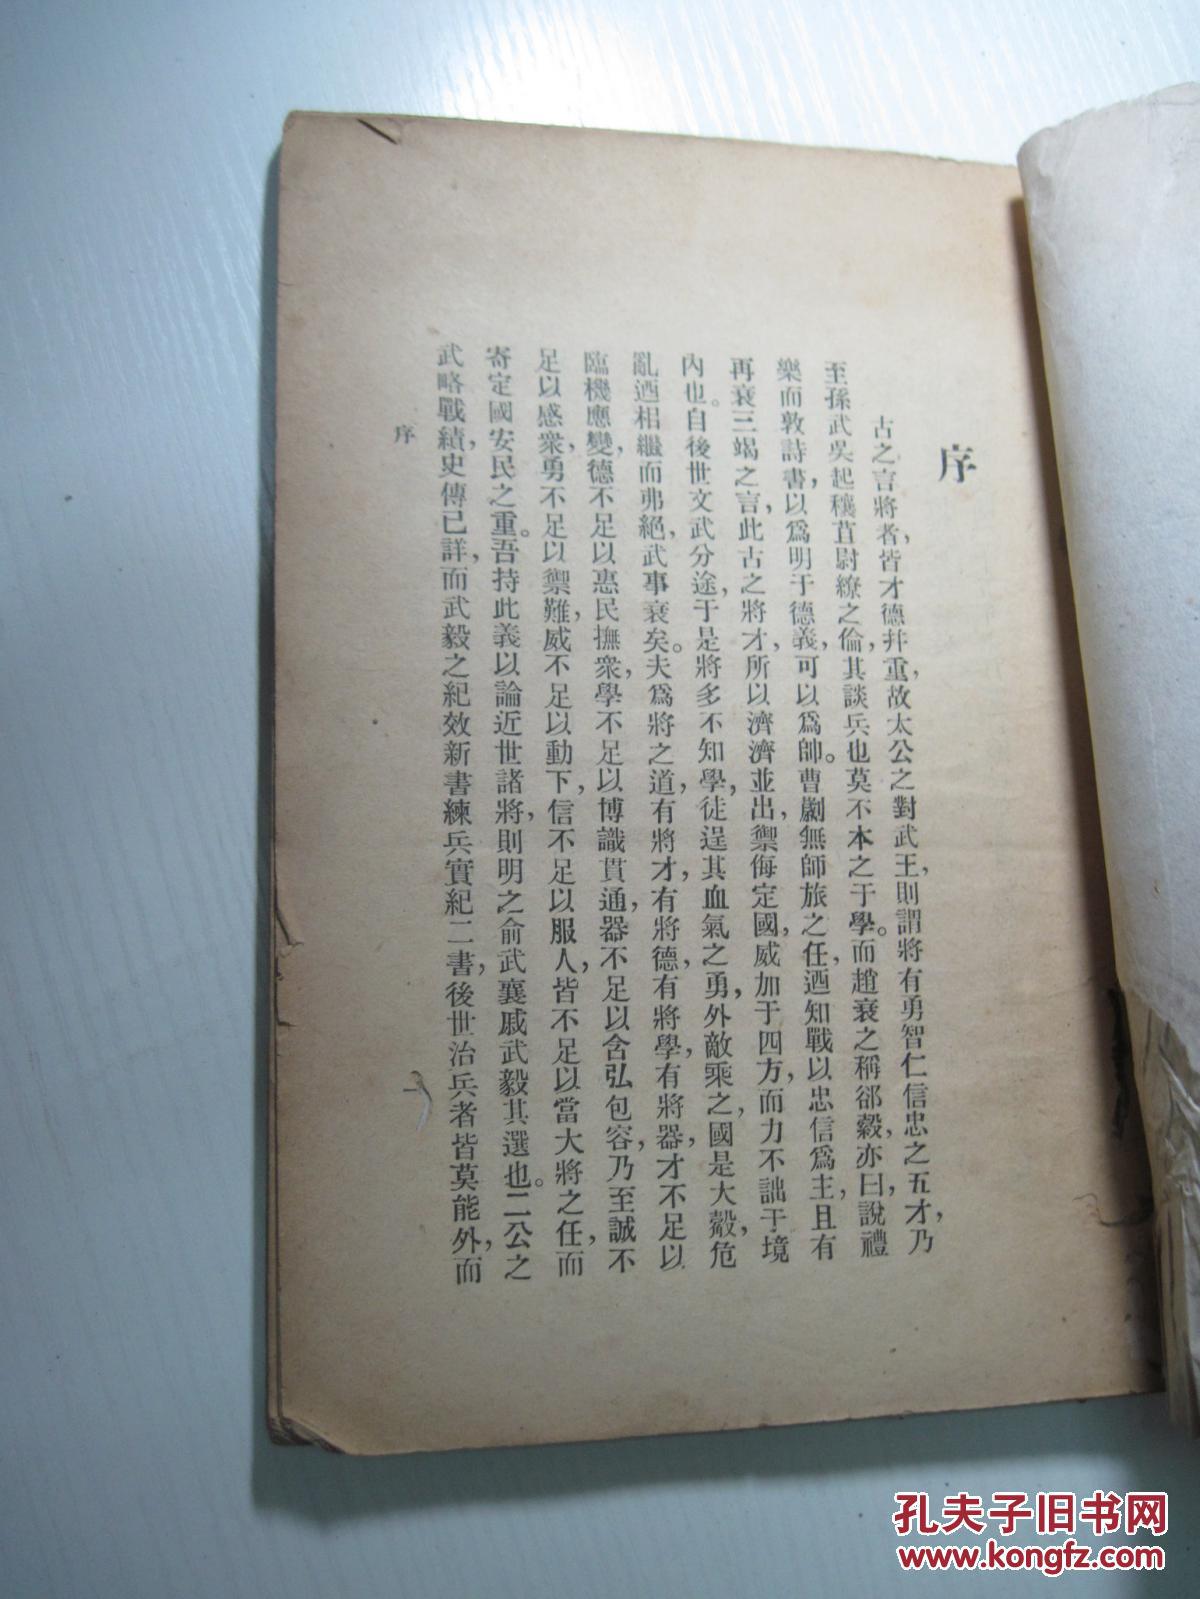 序
古之言將者，皆才德幷重，故太公之對武王，則謂將有勇智仁信忠之五才，乃
至孫武吳起穰苴尉繚之倫，其談兵也莫不本之于學。而趙衰之稱郤縠，亦曰，說禮
樂而敦詩書，以爲明于德義，可以爲帥。曹劌無師旅之任，迺知戰以忠信爲主，且有
再衰三竭之言，此古之將才，所以濟濟並出，禦侮定國，威加于四方，而力不詘于境
內也。自後世文武分途，于是將多不知學，徒逞其血氣之勇，外敵乘之，國是大㱿，危
亂迺相繼而弗絕，武事衰矣。夫爲將之道，有將才，有將德，有將學，有將器，才不足以
臨機應變，德不足以惠民撫衆，學不足以博識貫通，器不足以含弘包容，乃至誠不
足以感衆，勇不足以禦難，威不足以動下，信不足以服人，皆不足以當大將之任，而
寄定國安民之重。吾持此義以論近世諸將，則明之俞武襄戚武毅其選也。二公之
武略戰績，史傳已詳，而武毅之紀效新書練兵實紀二書，後世治兵者皆莫能外，而
序
一
孔夫子旧书网
www.kongfz.com